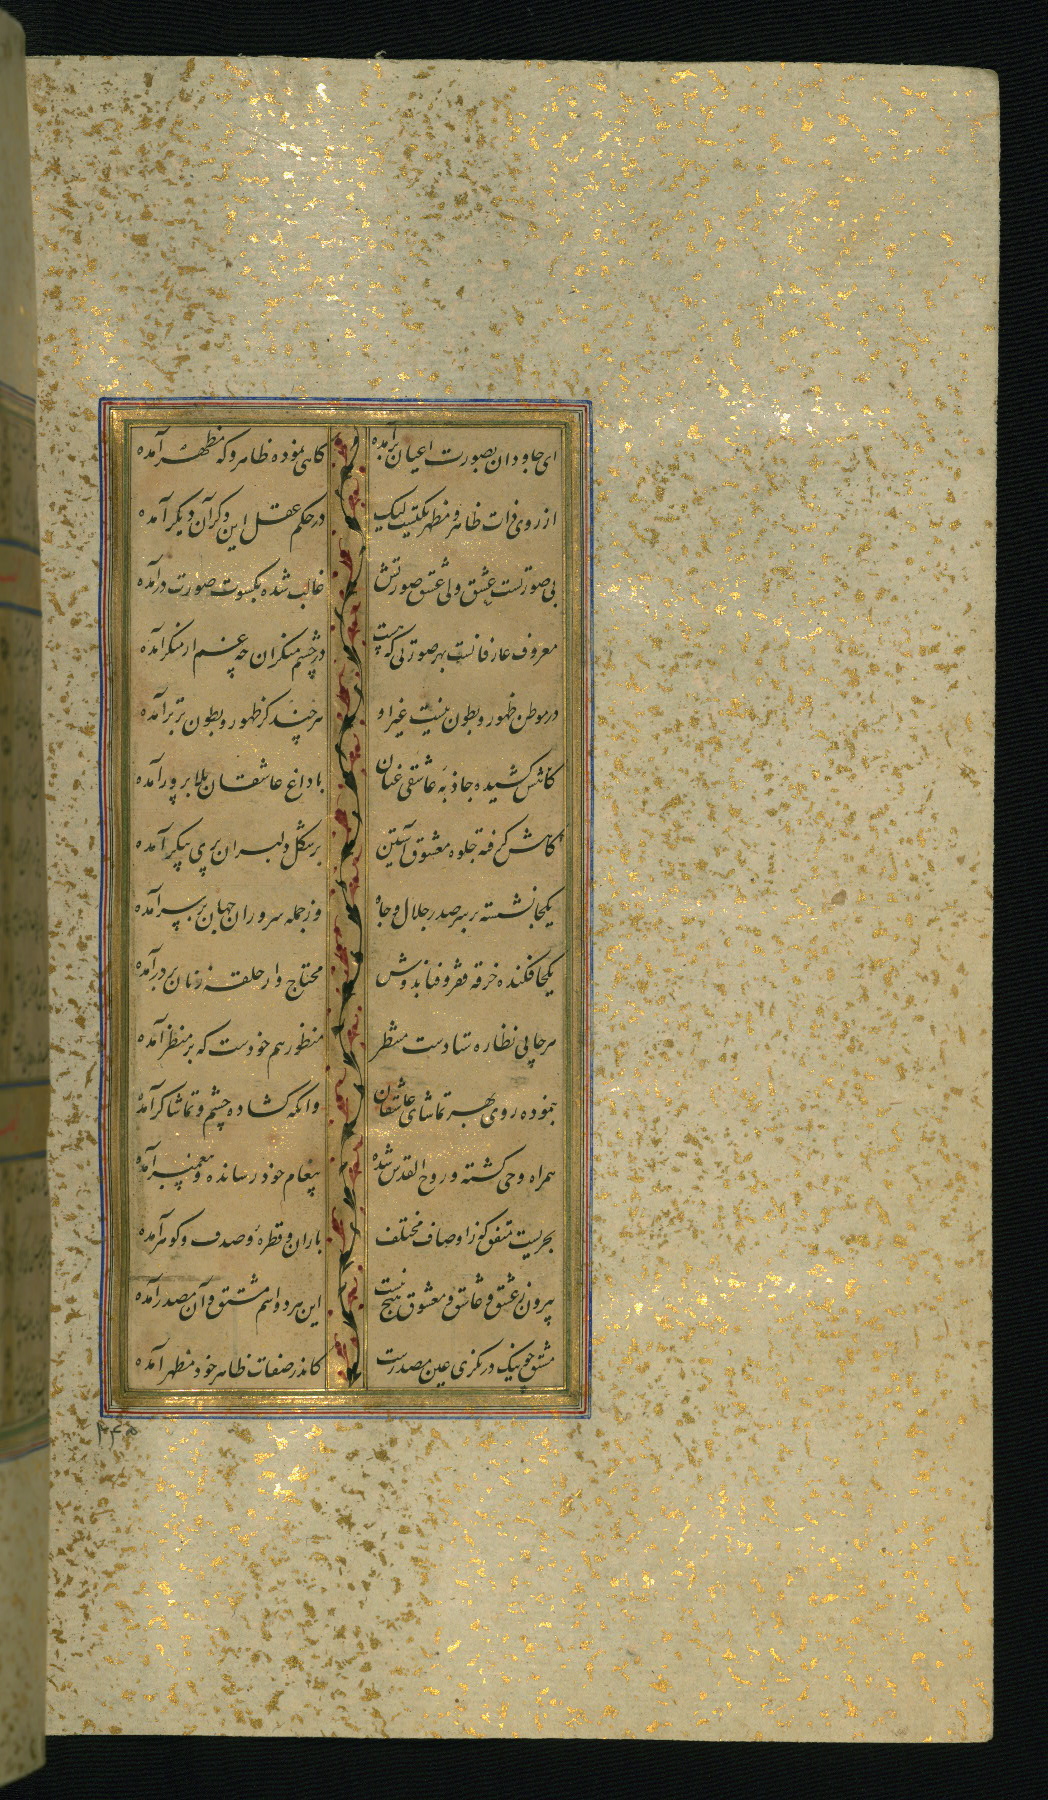 ای جاودان بصورت اعیان برآمده گاهی نموده ظاهر و گه مظهر آمده
از روی ذات ظاهر و مظهر یکیست لیک در حکم عقل این دگر آن دیگر آمده
بی صورتست عشق ولی عشق صورتش غالب شده بکسوت صورت درآمده
معروف عارفانست بهر صورتی که هست در چشم منکران چه غم ار منکر آمده
در موطن ظهور و بطون نیست غیر او هرچند کز ظهور و بطون برتر آمده
گاهش کشیده جاذبه عاشقی عنان با داغ عاشقان بلا پرور آمده
گاهش گرفته جلوه معشوق آستین بر شکل دلبران پری پیکر آمده
یکجا نشسته بر سر صدر جلال و جاه وز جمله سروران جهان بر سر آمده
یکجا فکنده خرقه فقر و فنا بدوش محتاج وار حلقه زنان بر در آمده
هرجا پی نظاره ستادست منتظر منظور هم خودست که بر منظر آمده
بنموده روی بهر تماشای عاشقان وانگه گشاده چشم و تماشاگر آمده
همراه وحی گشته و روح القدس شده پیغام خود رسانده و پیغمبر آمده
بحریست متفق که ز اوصاف مختلف باران و قطره و صدف و گوهر آمده
بیرون ز عشق و عاشق و معشوق هیچ نیست این هر دو اسم مشتق و آن مصدر آمده
مشتق چو نیک درنگری عین مصدرست کاندر صفات ظاهر خود مظهر آمده
۲۴۵